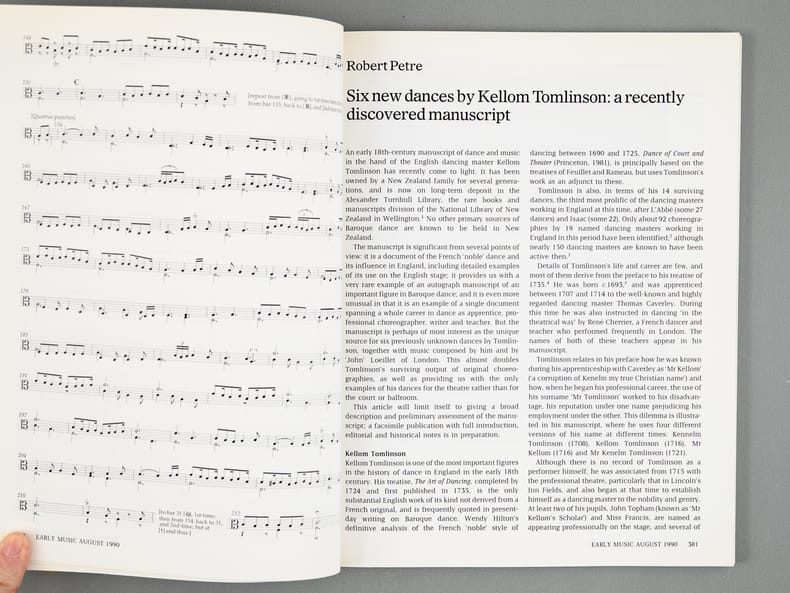 148
150
C
[repeat from [𝄋], going to 1st-time
from bar 115, back to [𝄋], and 2nd-time
[Quantus punctus]
154
160
167
173
179
185
191
197
204
210
[to bar 31 [𝄋], 1st time,
then from 154, back to 31,
and 2nd time, but at
[†] end thus:]
212
EARLY MUSIC AUGUST 1990
Robert Petre
Six new dances by Kellom Tomlinson: a recently
discovered manuscript
An early 18th-century manuscript of dance and music
in the hand of the English dancing master Kellom
Tomlinson has recently come to light. It has been
owned by a New Zealand family for several genera-
tions, and is now on long-term deposit in the
Alexander Turnbull Library, the rare books and
manuscripts division of the National Library of New
Zealand in Wellington.¹ No other primary sources of
Baroque dance are known to be held in New
Zealand.
The manuscript is significant from several points of
view: it is a document of the French 'noble' dance and
its influence in England, including detailed examples
of its use on the English stage; it provides us with a
very rare example of an autograph manuscript of an
important figure in Baroque dance; and it is even more
unusual in that it is an example of a single document
spanning a whole career in dance as apprentice, pro-
fessional choreographer, writer and teacher. But the
manuscript is perhaps of most interest as the unique
source for six previously unknown dances by Tomlin-
son, together with music composed by him and by
'John' Loeillet of London. This almost doubles
Tomlinson's surviving output of original choreo-
graphies, as well as providing us with the only
examples of his dances for the theatre rather than for
the court or ballroom.
This article will limit itself to giving a broad
description and preliminary assessment of the manu-
script; a facsimile publication with full introduction,
editorial and historical notes is in preparation.
Kellom Tomlinson
Kellom Tomlinson is one of the most important figures
in the history of dance in England in the early 18th
century. His treatise, The Art of Dancing, completed by
1724 and first published in 1735, is the only
substantial English work of its kind not derived from a
French original, and is frequently quoted in present-
day writing on Baroque dance. Wendy Hilton's
definitive analysis of the French 'noble' style of
dancing between 1690 and 1725, Dance of Court and
Theater (Princeton, 1981), is principally based on the
treatises of Feuillet and Rameau, but uses Tomlinson's
work as an adjunct to these.
Tomlinson is also, in terms of his 14 surviving
dances, the third most prolific of the dancing masters
working in England at this time, after L'Abbé (some 27
dances) and Isaac (some 22). Only about 92 choreogra-
phies by 19 named dancing masters working in
England in this period have been identified,² although
nearly 150 dancing masters are known to have been
active then.³
Details of Tomlinson's life and career are few, and
most of them derive from the preface to his treatise of
1735.⁴ He was born c.1693,⁵ and was apprenticed
between 1707 and 1714 to the well-known and highly
regarded dancing master Thomas Caverley. During
this time he was also instructed in dancing 'in the
theatrical way' by René Cherrier, a French dancer and
teacher who performed frequently in London. The
names of both of these teachers appear in his
manuscript.
Tomlinson relates in his preface how he was known
during his apprenticeship with Caverley as 'Mr Kellom'
('a corruption of Kenelm my true Christian name') and
how, when he began his professional career, the use of
his surname 'Mr Tomlinson' worked to his disadvan-
tage, his reputation under one name prejudicing his
employment under the other. This dilemma is illustra-
ted in his manuscript, where he uses four different
versions of his name at different times: Kennelm
Tomlinson (1708), Kellom Tomlinson (1716), Mr
Kellom (1716) and Mr Kenelm Tomlinson (1721).
Although there is no record of Tomlinson as a
performer himself, he was associated from 1715 with
the professional theatre, particularly that in Lincoln's
Inn Fields, and also began at that time to establish
himself as a dancing master to the nobility and gentry.
At least two of his pupils, John Topham (known as 'Mr
Kellom's Scholar') and Miss Francis, are named as
appearing professionally on the stage, and several of
EARLY MUSIC AUGUST 1990 381